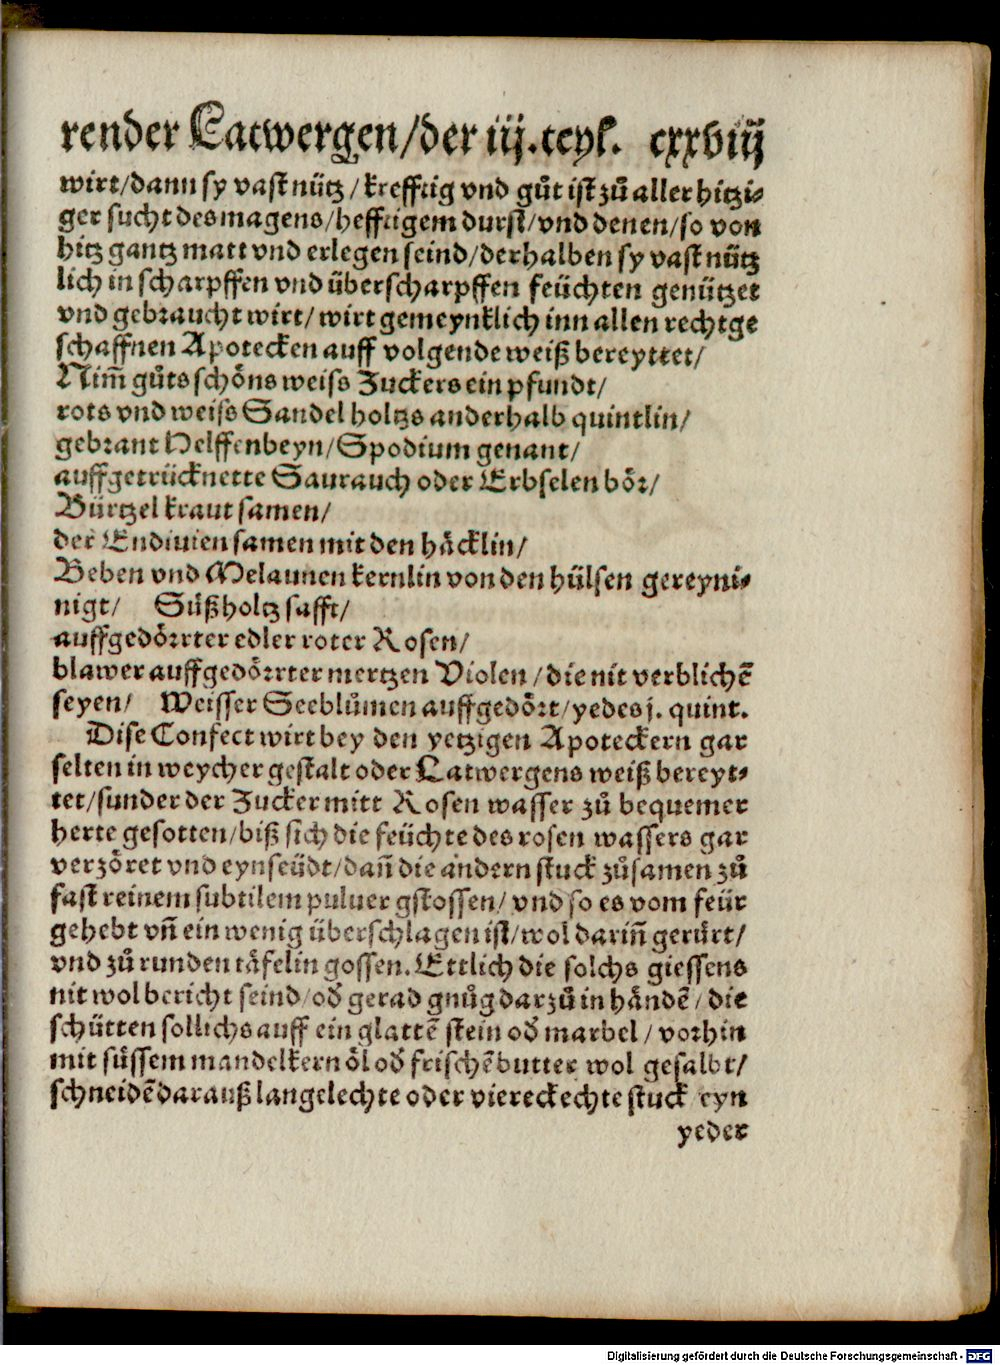 render Latwergen/der iij.teyl. cxxviij
wirt/dann sy vast nütz/krefftig vnd gůt ist zů aller hitzi⸗
ger sucht des magens/hefftigem durst/vnd denen/so von
hitz gantz matt vnd erlegen seind/derhalben sy vast nütz
lich in scharpffen vnd überscharpffen feüchten genützet
vnd gebraucht wirt/wirt gemeynklich inn allen rechtge
schaffnen Apotecken auff volgende weiß bereyttet/
Nim̃ gůts schöns weiss Zuckers ein pfundt/
rots vnd weiss Sandel holtzs anderhalb quintlin/
gebrant Helffenbeyn/Spodium genant/
auffgetrücknette Saurauch oder Erbselen bör/
Bürtzel kraut samen/
der Endiuien samen mit den häcklin/
Beben vnd Melaunen kernlin von den hülsen gereyni⸗
nigt/ Süßholtz safft/
auffgedörrter edler roter Rosen/
blawer auffgedörrter mertzen Violen/die nit verblichē
seyen/ Weisser Seeblůmen auffgedört/yedes j. quint.
Dise Confect wirt bey den yetzigen Apoteckern gar
selten in weycher gestalt oder Latwergens weiß bereyt⸗
tet/sunder der Zucker mitt Rosen wasser zů bequemer
herte gesotten/biß sich die feüchte des rosen wassers gar
verzöret vnd eynseüdt/dañ die andern stuck zůsamen zů
fast reinem subtilem puluer gstossen/vnd so es vom feür
gehebt vñ ein wenig überschlagen ist/wol dariñ gerürt/
vnd zů runden täfelin gossen. Ettlich die solchs giessens
nit wol bericht seind/oď gerad gnůg darzů in händē/die
schütten sollichs auff ein glattē stein oď marbel/vorhin
mit süssem mandelkern öl oď frischē butter wol gesalbt/
schneidē darauß langelechte oder viereckechte stuck eyn
yeder
Digitalisierung gefördert durch die Deutsche Forschungsgemeinschaft - DFG